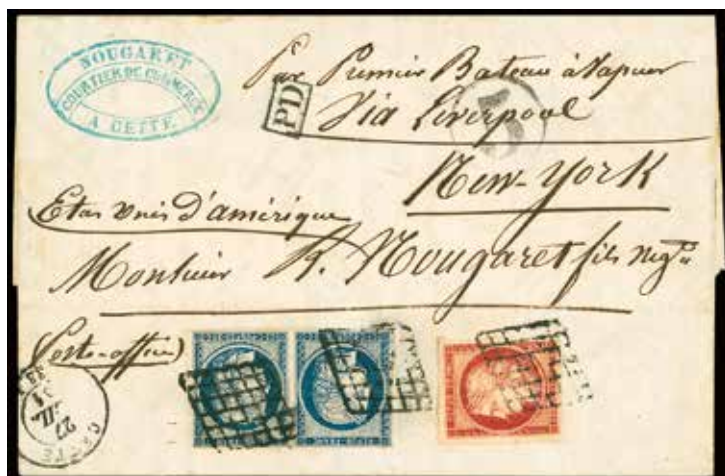 NOUGARET
COURTIER DE COMMERCE
A CETTE
Par Premier Bateau à Vapeur
PD
Via Liverpool
5
New-York
Etas unis d'amérique
Monsieur K. Nougaret fils neg.t
(Poste-office)
CETTE
27
JUIL.
51